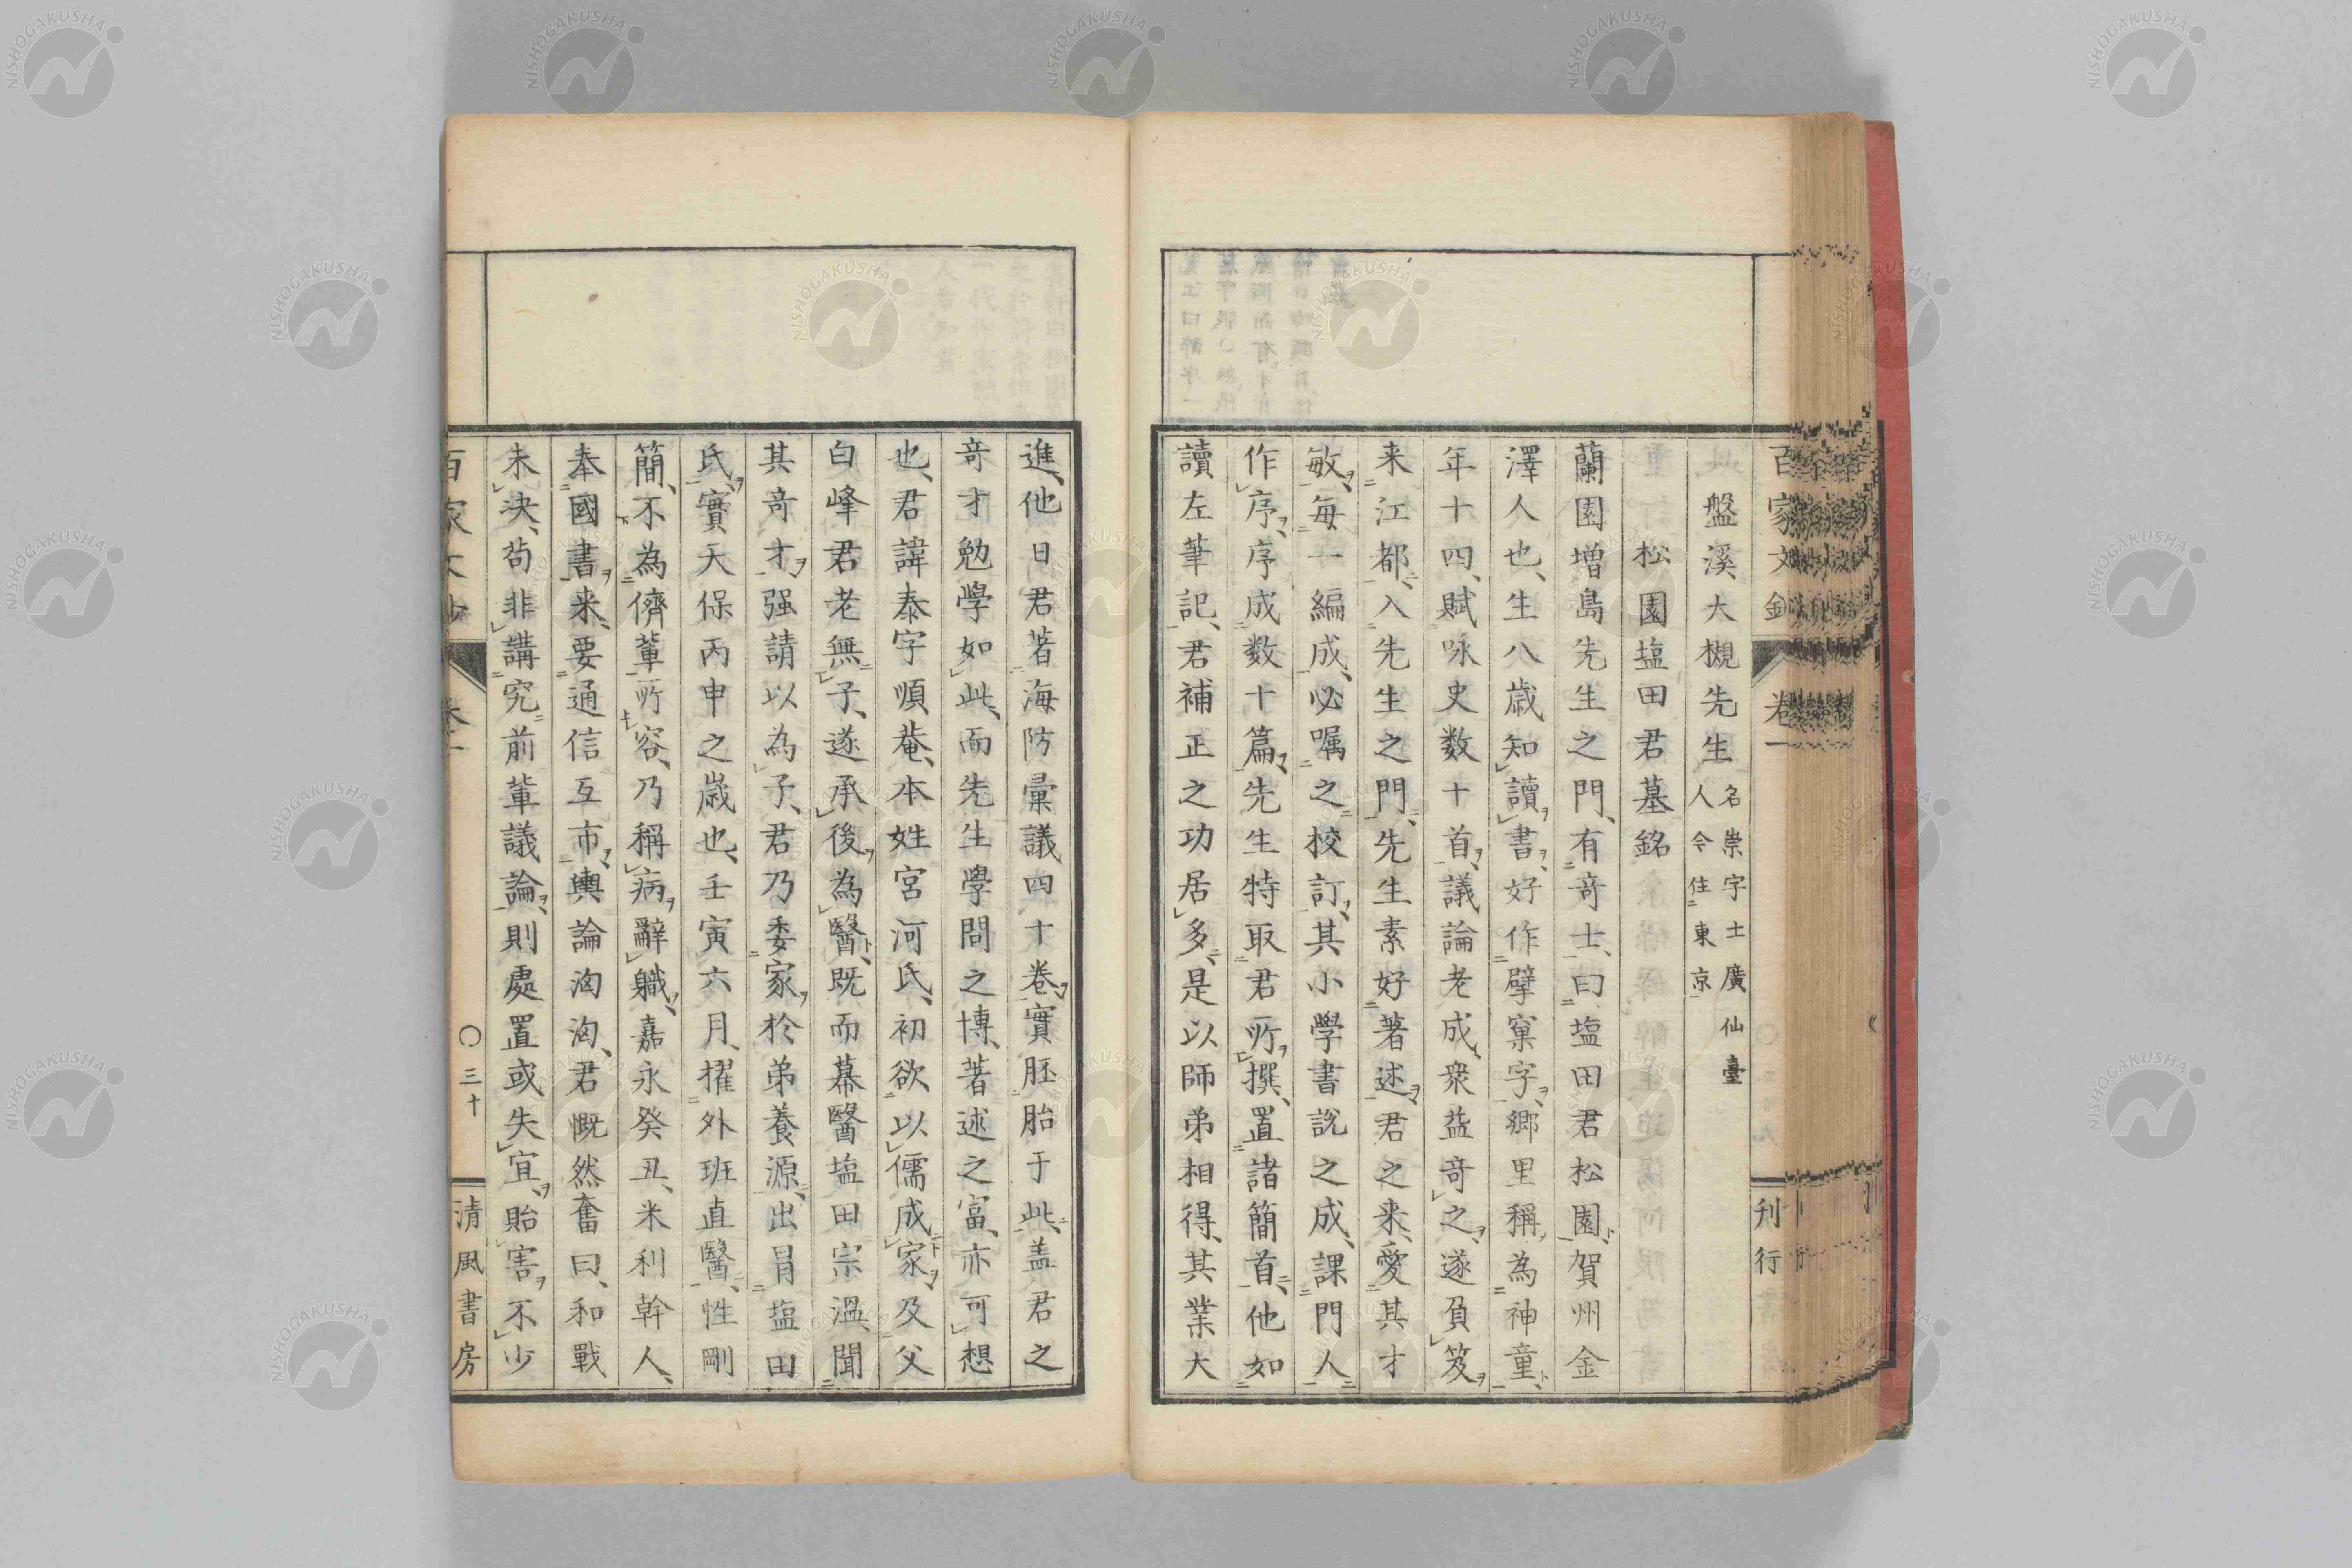 百家文鈔 卷一 刊行
盤溪大槻先生 名崇字士廣仙臺人今住東京
松園塩田君墓銘
蘭園増島先生之門、有竒士、曰塩田君松園、賀州金
澤人也、生八歳知讀書、好作擘窠字、郷里稱為神童、
年十四、賦咏史数十首、議論老成、衆益竒之、遂負笈
来江都、入先生之門、先生素好著述、君之来、愛其才
敏、毎一編成、必嘱之校訂、其小學書説之成、課門人
作序、序成数十篇、先生特取君所撰、置諸簡首、他如
讀左筆記、君補正之功居多、是以師弟相得、其業大
進、他日君著海防彙議四十卷、實胚胎于此、盖君之
竒才勉學如此、而先生學問之博、著述之富、亦可想
也、君諱泰字順菴、本姓宮河氏、初欲以儒成家、及父
白峰君老無子、遂承後為醫、既而幕醫塩田宗溫、聞
其竒才、强請以為子、君乃委家於弟養源、出冐塩田
氏、實天保丙申之歳也、壬寅六月、擢外班直醫、性剛
簡、不為儕輩所容、乃稱病辭職、嘉永癸丑、米利幹人、
奉國書来、要通信互市、輿論洶洶、君慨然奮曰、和戰
未决、茍非講究前輩議論、則處置或失宜、貽害不少
百家文鈔 卷一 〇三十 清風書房
NISHOGAKUSHA